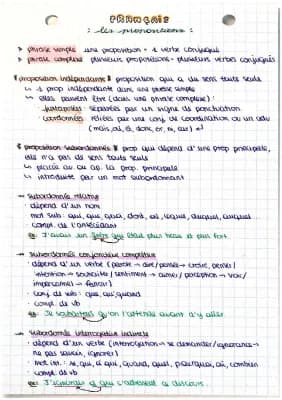 FRANÇAIS
: les propositions :
> phrase simple une proposition = 1 verbe conjugué
> phrase complexe plusieurs propositions = plusieurs verbes conjugués
proposition indépendante proposition qui a du sens toute seule
↳ 1 prop indépendante dans une phrase simple
↳ elles peuvent être (dans une phrase complexe) :
· juxtaposées : séparées par un signe de ponctuation
· coordonnées : reliées par une conj de coordination ou un adv
(mais, où, et, donc, or, ni, car)
proposition subordonnée prop qui dépend d'une prop principale,
elle n'a pas de sens toute seule
↳ placée av ou ap. la prop. principale
↳ introduite par un mot subordonnant
→ subordonnée relative
· dépend d'un nom
· mot sub : qui, que, quoi, dont, où, lequel, duquel, auquel
· compl. de l'antécédent
ex: J'avais un qui était plus beau et plus fort.
→ subordonnée conjonctive complétive
· dépend d'un verbe (parole → dire / pensée → croire, penser /
intention → souhaiter / sentiment → aimer / perception → voir /
impersonnel →
· conj de sub : que, qu', quand
· compl. de vb
ex: Je souhaiterais qu'on l'attende avant d'y aller.
→ subordonnée interrogative indirecte
· dépend d'un verbe (interrogation → se demander / ignorance →
ne pas savoir, ignorer)
· mot int. : si, qui, à qui, quand, quel, pourquoi, où, combien
· compl. de vb
ex: J'ignorais à qui s'adressait ce discours.